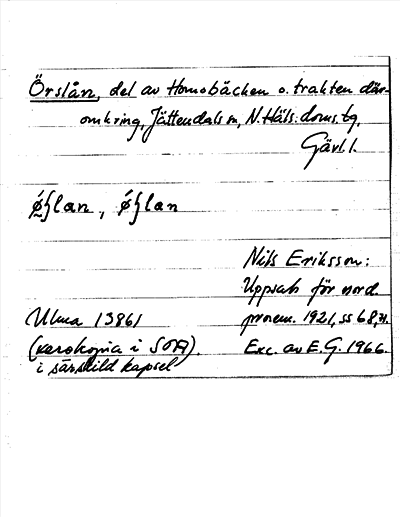 Örslån, del av Homobäcken o. trakten där-
omkring, Jättendals sn, N. Häls. doms. tg,
Gävl. l.
ǿʃlan, ǿʃlan
Nils Eriksson:
Uppsats för nord.
prosem. 1921, ss 68, 71.
Ulma 13861
(xerokopia i SOA).
i särskild kapsel
Exc. av E. G. 1966.